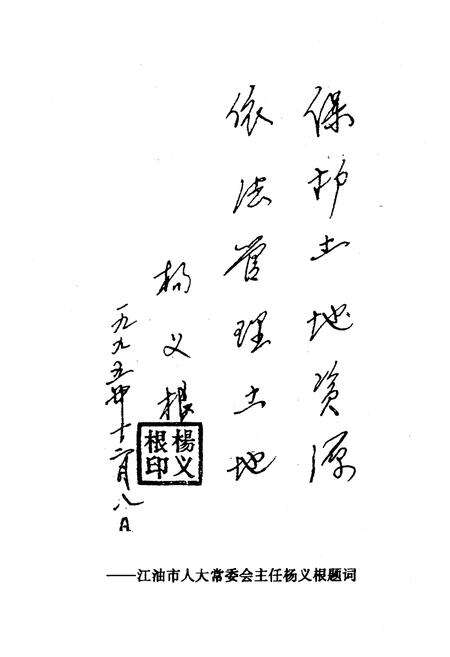 保护土地资源
依法管理土地
杨义根
一九九五年十二月八日
楊义根印
——江油市人大常委会主任杨义根题词